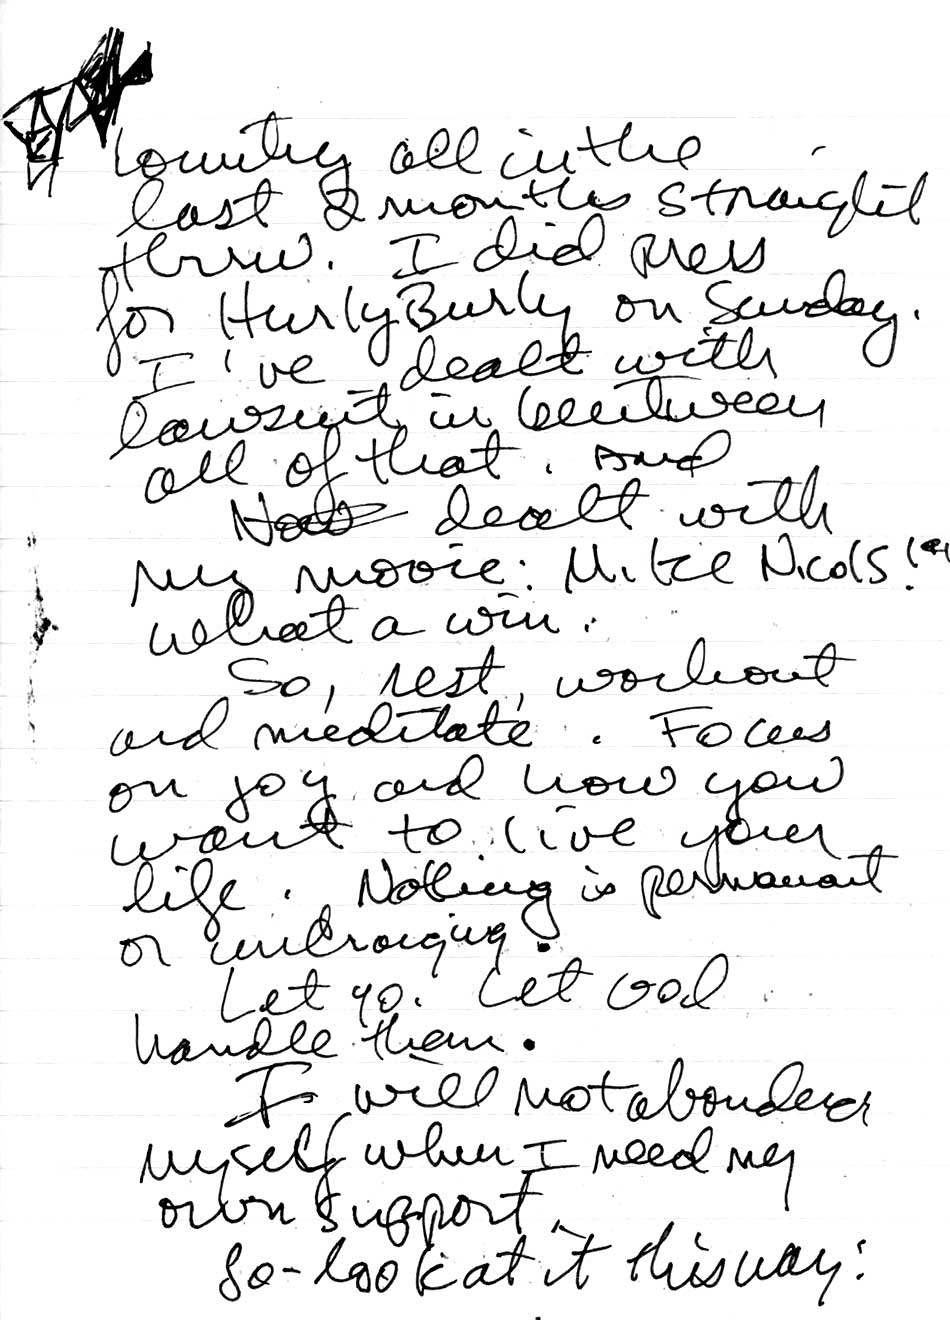 country all in the
last 2 months straight
thru. I did press
for HurlyBurly on Sunday.
I've dealt with
lawsuit in beetween
all of that. And
Now dealt with
my movie: Mike Nicols!
what a win.
So, rest, workout
and meditate. Focus
on joy and how you
want to live your
life. Nothing is permanant
or unchanging.
Let go. Let God
handle them.
I will not abondon
myself when I need my
own support.
So - look at it this way: